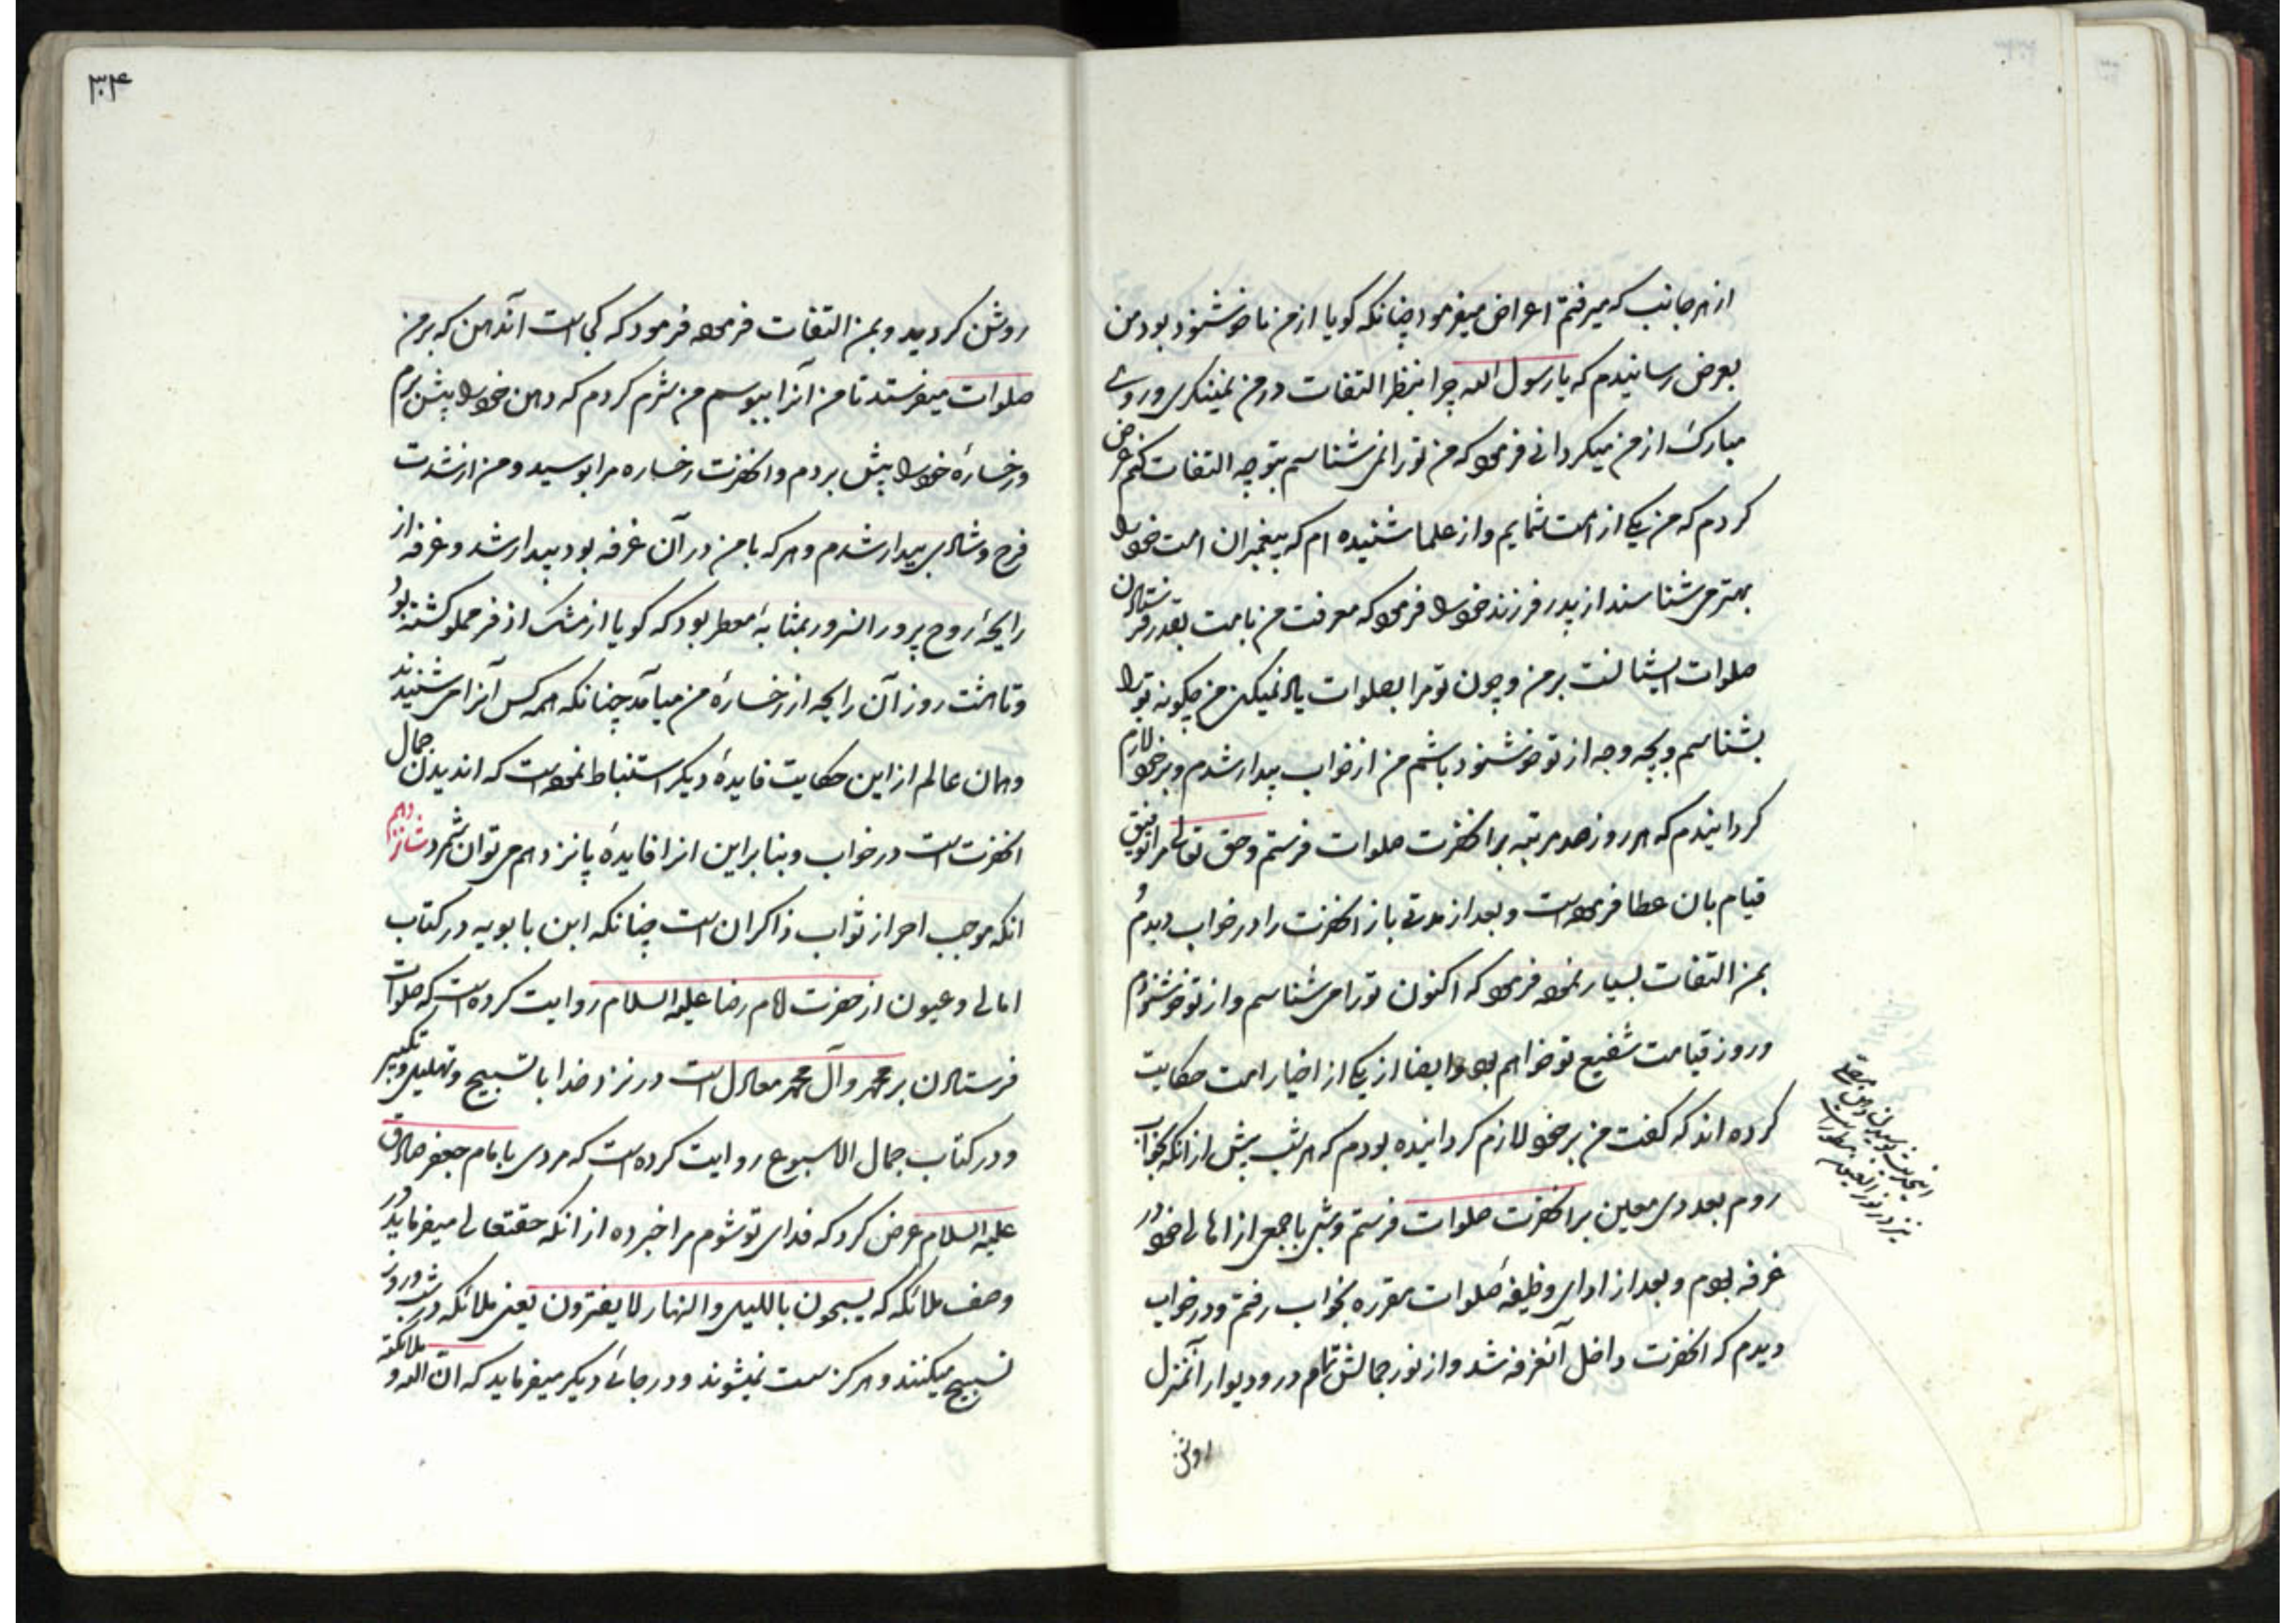 از هر جانب که میرفتم اعراض میفرمود چنانکه کویا از من ناخوشنود بود من
بعرض رسانیدم که یا رسول الله چرا بنظر التفات در من نمینکری و روی
مبارک از من میکردانی فرمود که من تو را نمی‌شناسم بتو چه التفات کنم عرض
کردم که من یکی از امت شمایم و از علما شنیده ام که پیغمبران امت خود را
بهتر می‌شناسند از پدر فرزند خود را فرمود که معرفت من بامت بقدر فرستادن
صلوات ایشانست بر من و چون تو مرا بصلوات یاد نمیکنی من چکونه تو را
بشناسم و بچه وجه از تو خوشنود باشم من از خواب بیدار شدم و بر خود لازم
کردانیدم که هر روز صد مرتبه بر انحضرت صلوات فرستم و حق تعالی مرا توفیق
قیام بان عطا فرموده است و بعد از مدتی باز انحضرت را در خواب دیدم و
بمن التفات بسیار نموده فرمود که اکنون تو را می‌شناسم و از تو خوشنودم
و روز قیامت شفیع تو خواهم بود و ایضا از یکی از اخیار امت حکایت
کرده اند که کفت من بر خود لازم کردانیده بودم که هر شب پیش از انکه بخواب
روم بعددی معین بر انحضرت صلوات فرستم و شبی با جمعی از اهالی خود در
غرفه بودم و بعد از ادای وظیفهٔ صلوات مقرره بخواب رفتم و در خواب
دیدم که انحضرت داخل آنغرفه شد و از نور جمالش تمام در و دیوار آنمنزل
روشن
۳۰۴
روشن کردید و بمن التفات فرموده فرمود که کجاست آندهن که بر من
صلوات میفرستد تا من آنرا ببوسم من شرم کردم که دهن خود را پیش برم
رخسارهٔ خود را پیش بردم و انحضرت رخساره مرا بوسید و من از شدت
فرح و شادی بیدار شدم و هر که با من در آن غرفه بود بیدار شد و غرفه از
رایحهٔ روح پرور انسرور بمثابهٔ معطر بود که کویا از مشک اذفر مملو کشته بود
و تا هشت روز آن رایحه از رخسارهٔ من میآمد چنانکه همه کس آنرا می‌شنیدند
و همان عالم از این حکایت فایدهٔ دیکر استنباط نموده است که اندیدن جمال
انحضرت است در خواب و بنا براین انرا فایدهٔ پانزدهم می‌توان شمرد شانزدهم
انکه موجب احراز ثواب ذاکران است چنانکه ابن بابویه در کتاب
امالی و عیون از حضرت امام رضا علیه السلام روایت کرده است که صلوات
فرستادن بر محمد و آل محمد معادل است در نزد خدا با تسبیح و تهلیل و تکبیر
و در کتاب جمال الاسبوع روایت کرده است که مردی بامام جعفر صادق
علیه السلام عرض کرد که فدای تو شوم مرا خبر ده از انکه حقتعالی میفرماید در
وصف ملائکه که یسبحون باللیل و النهار لا یفترون یعنی ملائکه در شب و روز
تسبیح میکنند و هرکز سست نمیشوند و در جائی دیکر میفرماید که انّ الله و ملائکته